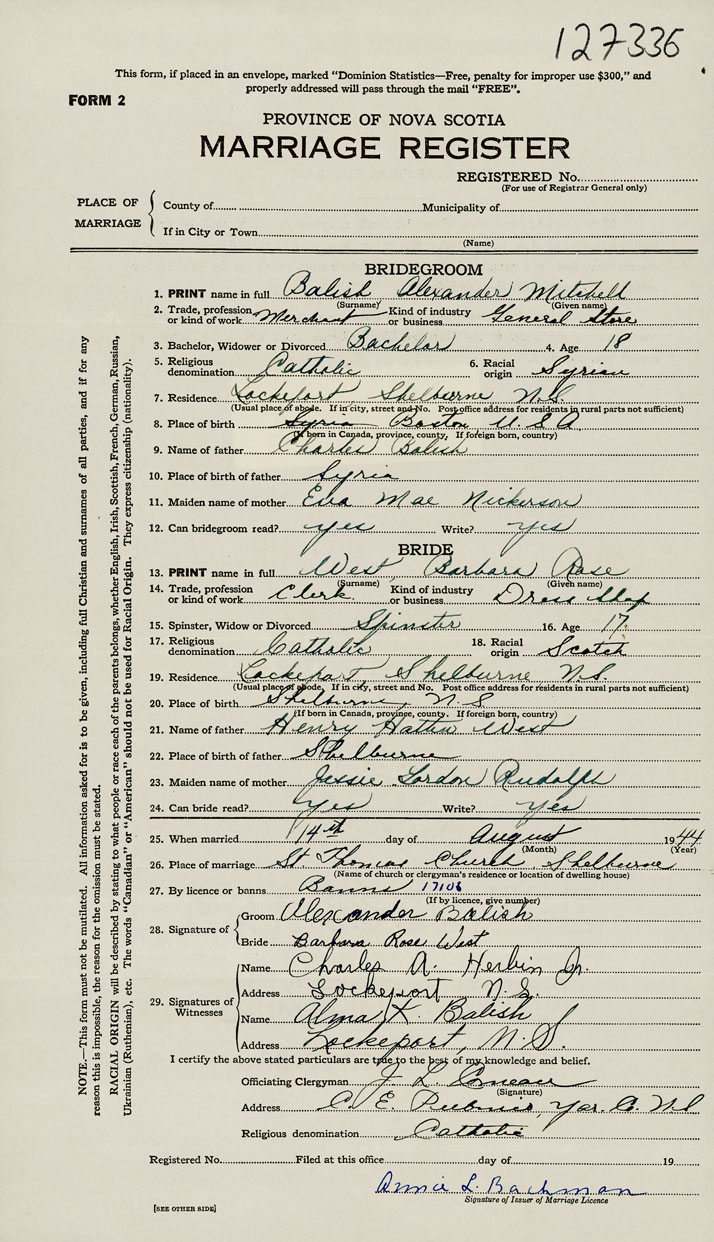 127336
This form, if placed in an envelope, marked "Dominion Statistics—Free, penalty for improper use $300," and
properly addressed will pass through the mail "FREE".
FORM 2
PROVINCE OF NOVA SCOTIA
MARRIAGE REGISTER
REGISTERED No.
(For use of Registrar General only)
PLACE OF MARRIAGE
County of Municipality of
If in City or Town
(Name)
BRIDEGROOM
1. PRINT name in full Balish Alexander Mitchell
(Surname) (Given name)
2. Trade, profession or kind of work Merchant Kind of industry or business General Store
3. Bachelor, Widower or Divorced Bachelor 4. Age 18
5. Religious denomination Catholic 6. Racial origin Syrian
7. Residence Lockeport Shelburne N.S.
(Usual place of abode. If in city, street and No. Post office address for residents in rural parts not sufficient)
8. Place of birth Syria Boston U.S.A
(If born in Canada, province, county, If foreign born, country)
9. Name of father Charles Balish
10. Place of birth of father Syria
11. Maiden name of mother Eva Mae Nickerson
12. Can bridegroom read? yes Write? yes
BRIDE
13. PRINT name in full West Barbara Rose
(Surname) (Given name)
14. Trade, profession or kind of work Clerk Kind of industry or business Dress Shop
15. Spinster, Widow or Divorced Spinster 16. Age 17
17. Religious denomination Catholic 18. Racial origin Scotch
19. Residence Lockeport, Shelburne N.S.
(Usual place of abode. If in city, street and No. Post office address for residents in rural parts not sufficient)
20. Place of birth Shelburne, N.S
(If born in Canada, province, county. If foreign born, country)
21. Name of father Henry West
22. Place of birth of father Shelburne
23. Maiden name of mother Jessie Gordon Rudolph
24. Can bride read? yes Write? yes
25. When married 14th day of August 1944
(Month) (Year)
26. Place of marriage St Thomas Church Shelburne
(Name of church or clergyman's residence or location of dwelling house)
27. By licence or banns Banns 17106
(If by licence, give number)
28. Signature of
Groom Alexander Balish
Bride Barbara Rose West
29. Signatures of Witnesses
Name Charles A. Herbin Jr.
Address Lockeport N.S.
Name Alma K. Balish
Address Lockeport, N.S.
I certify the above stated particulars are true to the best of my knowledge and belief.
Officiating Clergyman J. L. Comeau
(Signature)
Address C. E. Yar. Co. N.S
Religious denomination Catholic
Registered No. Filed at this office day of 19
Annie L. Bachman
Signature of Issuer of Marriage Licence
[SEE OTHER SIDE]
NOTE.—This form must not be mutilated. All information asked for is to be given, including full Christian and surnames of all parties, and if for any
reason this is impossible, the reason for the omission must be stated.
RACIAL ORIGIN will be described by stating to what people or race each of the parents belongs, whether English, Irish, Scottish, French, German, Russian,
Ukrainian (Ruthenian), etc. The words "Canadian" or "American" should not be used for Racial Origin. They express citizenship (nationality).